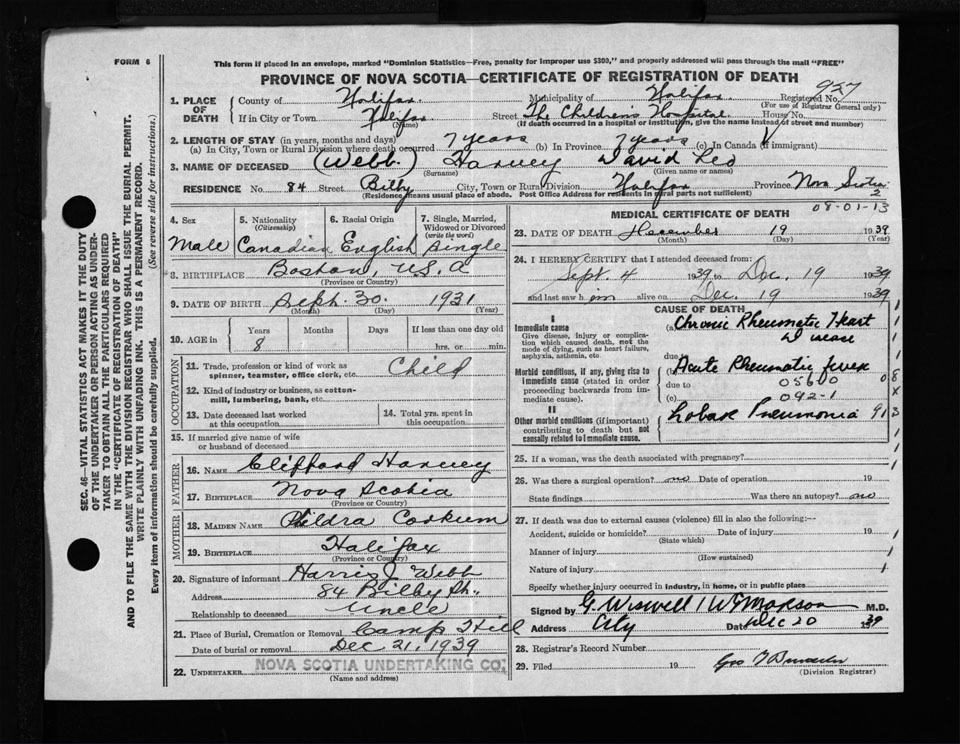 FORM 6
This form if placed in an envelope, marked "Dominion Statistics—Free, penalty for improper use $300," and properly addressed will pass through the mail "FREE"
PROVINCE OF NOVA SCOTIA—CERTIFICATE OF REGISTRATION OF DEATH
Registered No. 927
(For use of Registrar General only)
1. PLACE OF DEATH County of Halifax. Municipality of Halifax.
If in City or Town Halifax (Name) Street The Children's Hospital
(If death occurred in a hospital or institution, give the name instead of street and number)
2. LENGTH OF STAY (in years, months and days)
(a) In City, Town or Rural Division where death occurred 7 years (b) In Province 7 years (c) In Canada (if immigrant)
3. NAME OF DECEASED (Webb.) Harvey David Leo
(Surname) (Given name or names)
RESIDENCE No. 84 Street Bilby City, Town or Rural Division Halifax Province Nova Scotia
(Residence means usual place of abode. Post Office Address for residents in rural parts not sufficient)
2
08-01-13
4. Sex Male
5. Nationality (Citizenship) Canadian
6. Racial Origin English
7. Single, Married, Widowed or Divorced (write the word) Single
8. BIRTHPLACE Boston, U.S.A
(Province or Country)
9. DATE OF BIRTH Sept. 30. 1931
(Month) (Day) (Year)
10. AGE in Years Months Days If less than one day old
8 hrs. or min.
OCCUPATION
11. Trade, profession or kind of work as spinner, teamster, office clerk, etc. Child
12. Kind of industry or business, as cotton-mill, lumbering, bank, etc.
13. Date deceased last worked at this occupation
14. Total yrs. spent in this occupation
15. If married give name of wife or husband of deceased
FATHER
16. NAME Clifford Harvey
17. BIRTHPLACE Nova Scotia
(Province or Country)
MOTHER
18. MAIDEN NAME Corkum
19. BIRTHPLACE Halifax
(Province or Country)
20. Signature of informant Harris J Webb
Address 84 Bilby St.
Relationship to deceased Uncle
21. Place of Burial, Cremation or Removal Camp Hill
Date of burial or removal Dec 21, 1939
22. UNDERTAKER NOVA SCOTIA UNDERTAKING CO.
(Name and address)
MEDICAL CERTIFICATE OF DEATH
23. DATE OF DEATH December 19 1939
(Month) (Day) (Year)
24. I HEREBY CERTIFY that I attended deceased from:
Sept. 4 1939 to Dec. 19 1939
and last saw him alive on Dec. 19 1939
CAUSE OF DEATH
I
Immediate cause
Give disease, injury or complication which caused death, not the mode of dying, such as heart failure, asphyxia, asthenia, etc.
(a) Chronic Rheumatic Heart Disease
due to
Morbid conditions, if any, giving rise to immediate cause (stated in order proceeding backwards from immediate cause).
(b) Acute Rheumatic fever
due to 05600
(c) 092-1
II
Other morbid conditions (if important) contributing to death but not causally related to immediate cause.
Lobar Pneumonia
25. If a woman, was the death associated with pregnancy?
26. Was there a surgical operation? no Date of operation 19
State findings Was there an autopsy? no
27. If death was due to external causes (violence) fill in also the following:—
Accident, suicide or homicide? Date of injury 19
(State which)
Manner of injury
(How sustained)
Nature of injury
Specify whether injury occurred in industry, in home, or in public place
Signed by G. Wiswell M.D.
Address City Date Dec 20 1939
28. Registrar's Record Number
29. Filed 19
(Division Registrar)
SEC. 46—VITAL STATISTICS ACT MAKES IT THE DUTY
OF THE UNDERTAKER OR PERSON ACTING AS UNDER-
TAKER TO OBTAIN ALL THE PARTICULARS REQUIRED
IN THE "CERTIFICATE OF REGISTRATION OF DEATH"
AND TO FILE THE SAME WITH THE DIVISION REGISTRAR WHO SHALL ISSUE THE BURIAL PERMIT.
WRITE PLAINLY WITH UNFADING INK. THIS IS A PERMANENT RECORD.
Every item of information should be carefully supplied. (See reverse side for instructions.)